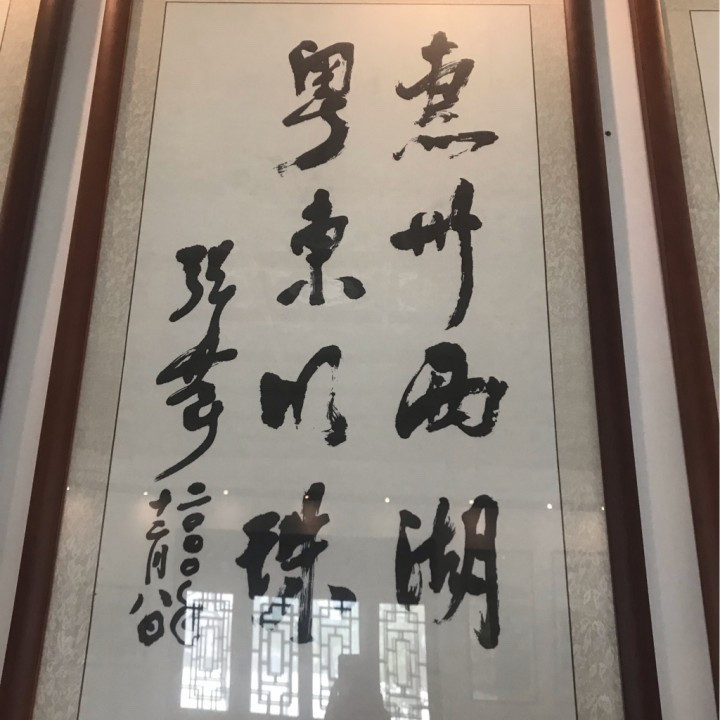 惠州西湖
粤東明珠
张
二〇〇〇年
十二月八日